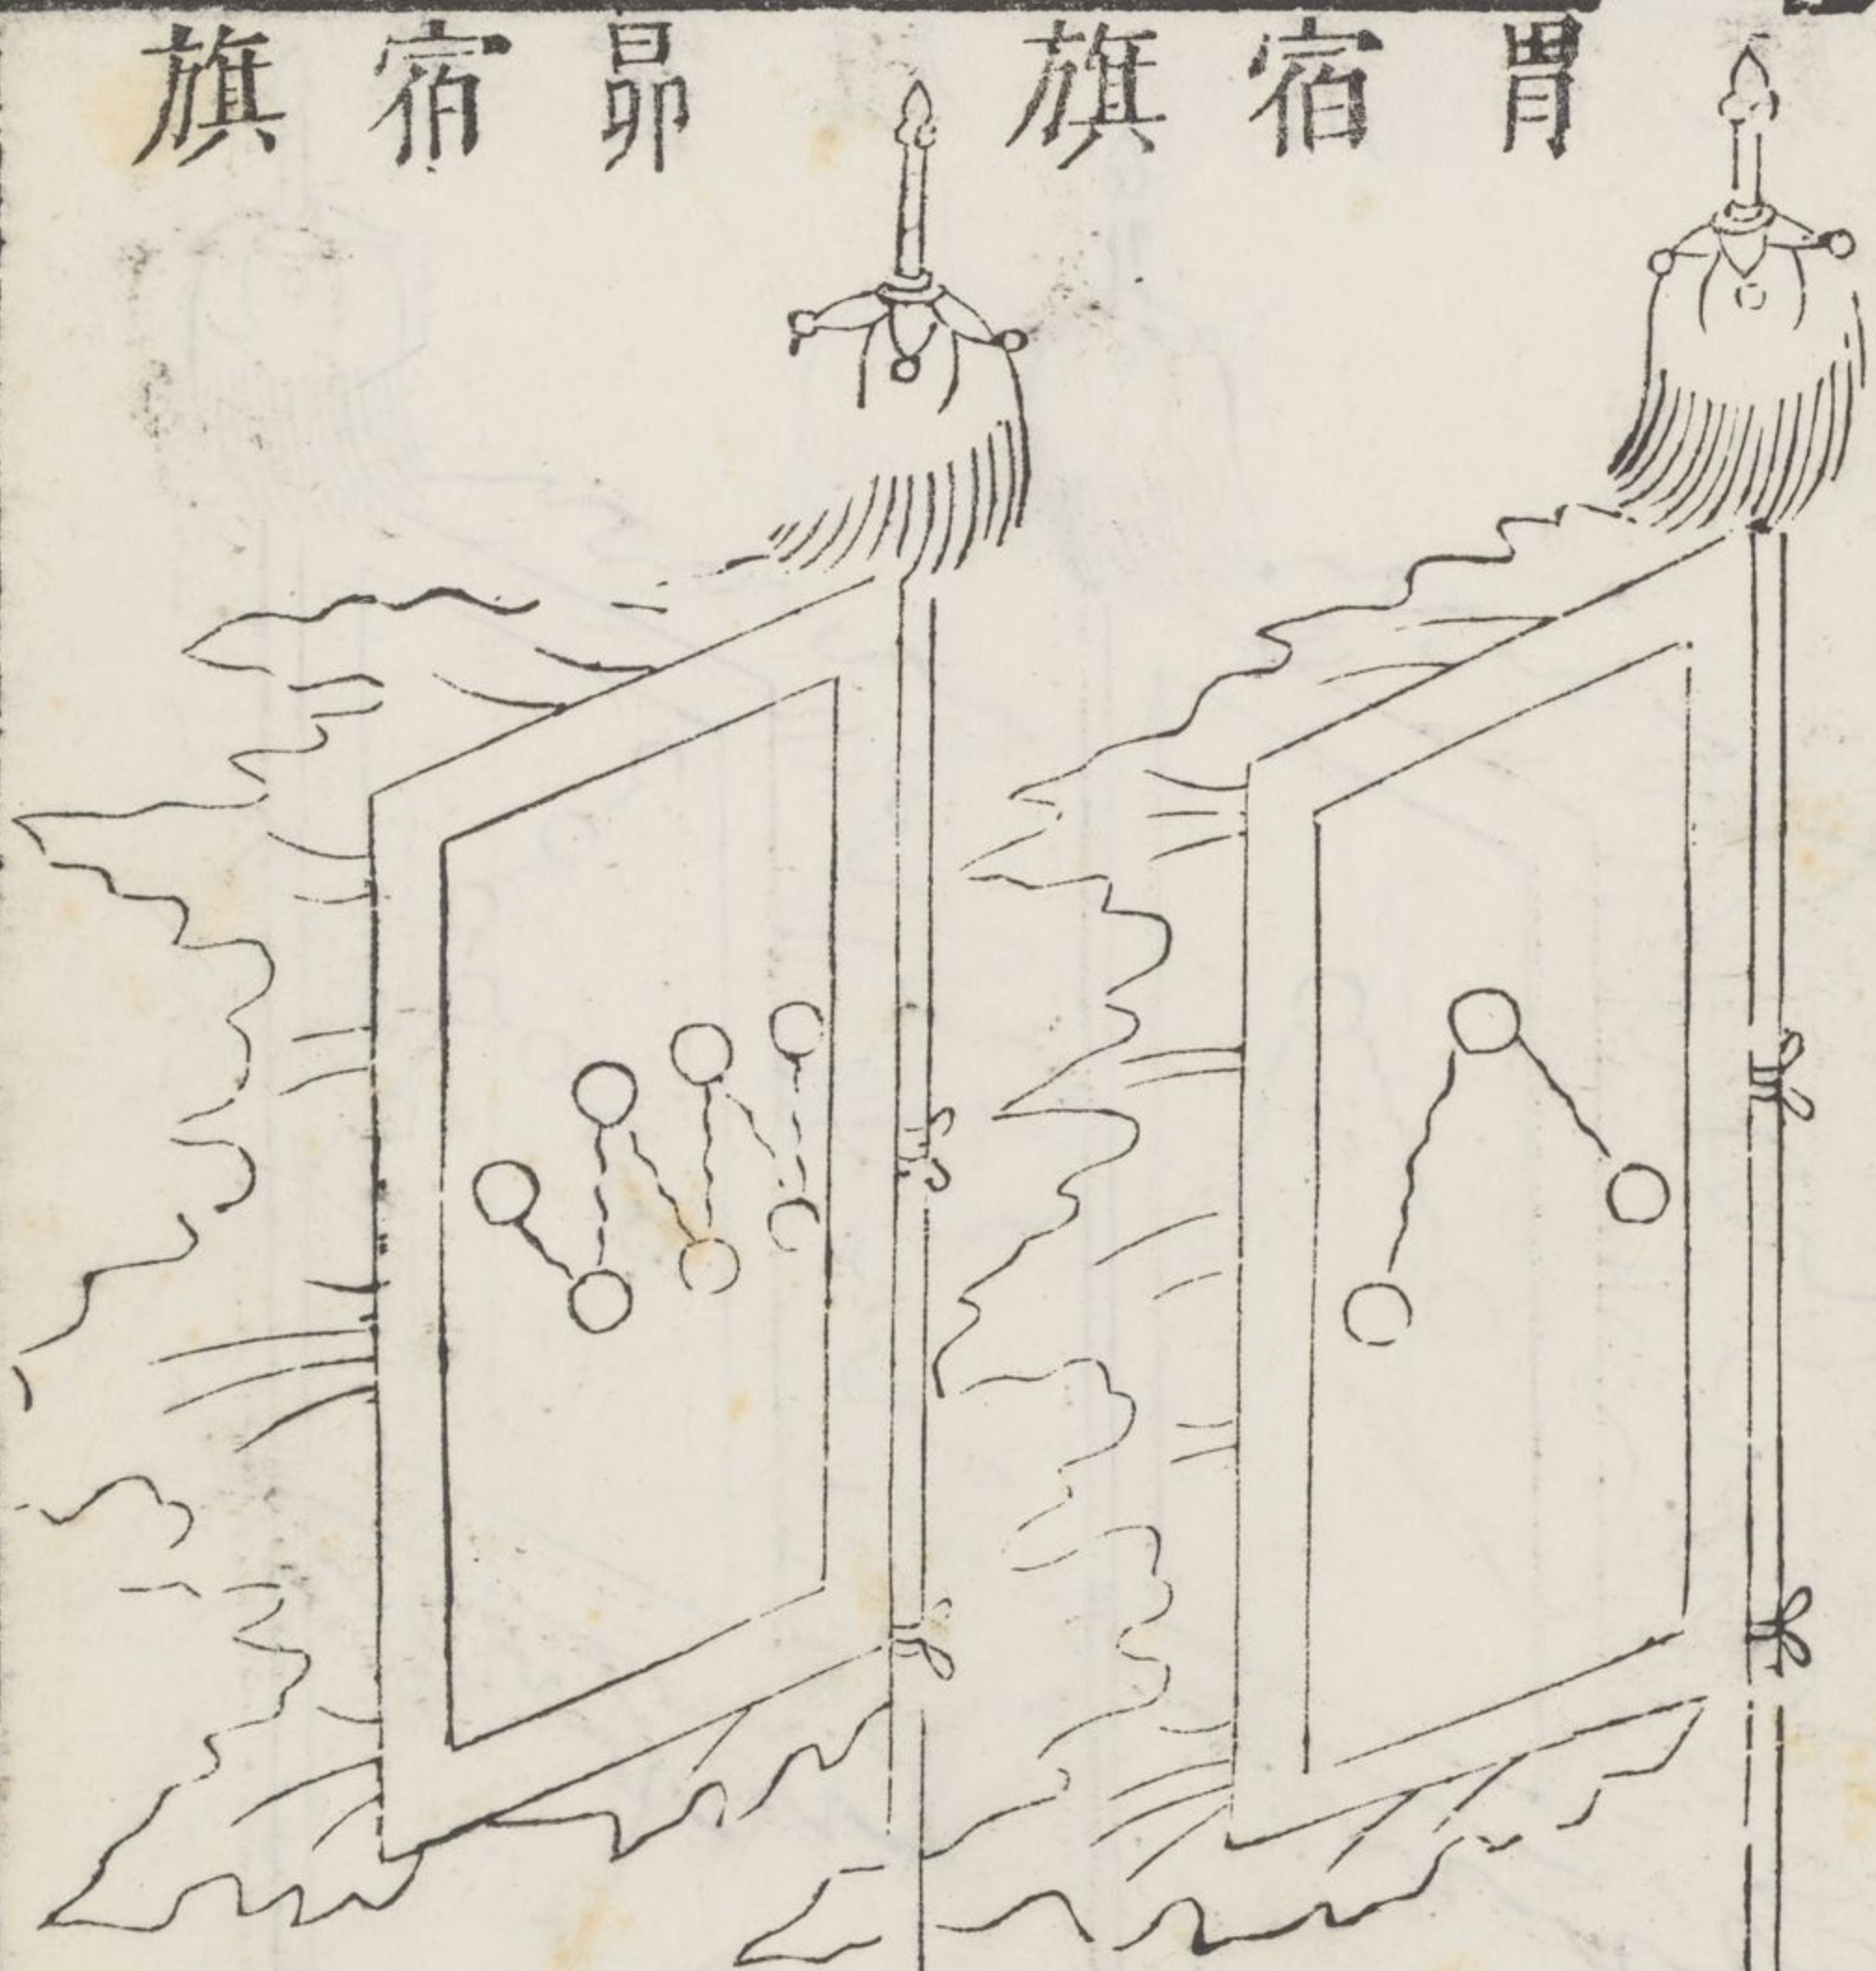 胃宿旗
昴宿旗